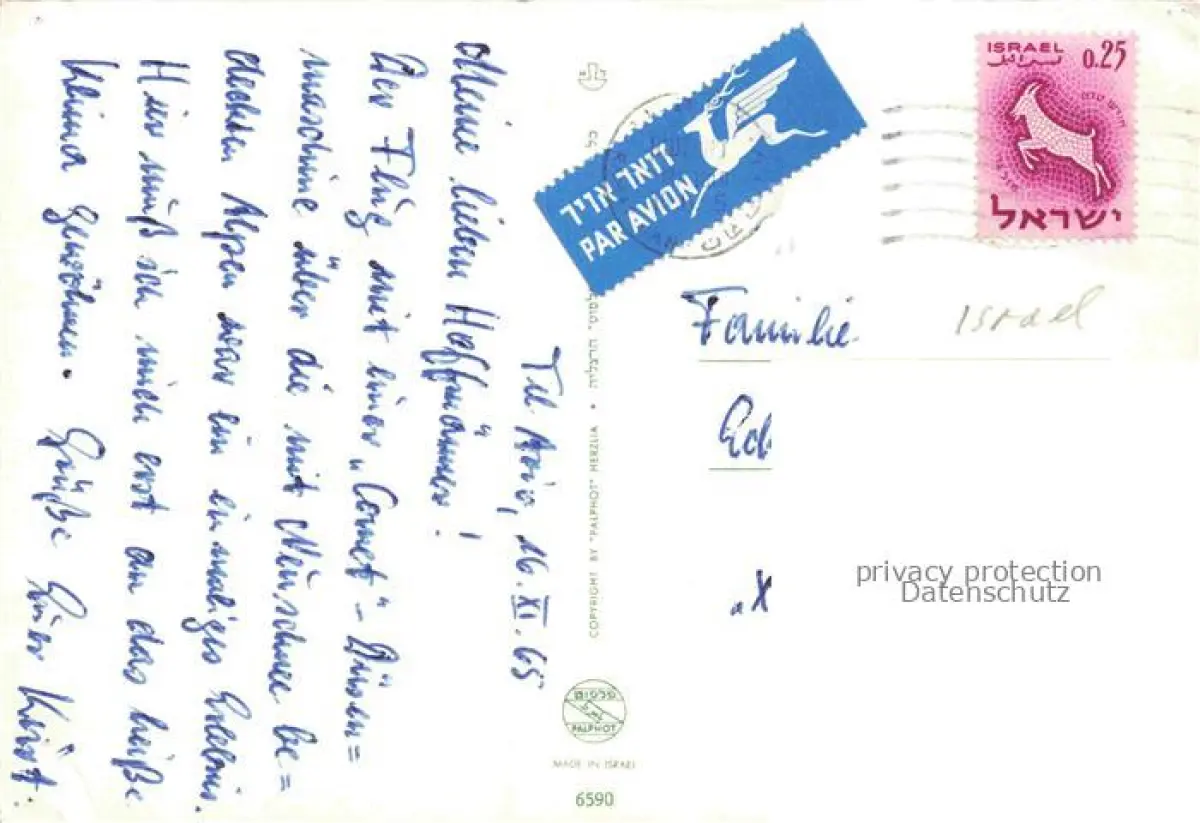 Tel Aviv, 16.XI.65
Meine lieben Hoffmänner!
Der Flug mit einer „Comet"-Düsen=
maschine über die mit Neuschnee be=
deckten Alpen war ein einmaliges Erlebnis.
Hier muß ich mich erst an das heiße
Klima gewöhnen. Grüße Euer Kurt.
COPYRIGHT BY "PALPHOT" HERZELIA •
פלפוט
PALPHOT
MADE IN ISRAEL
6590
דואר אויר
PAR AVION
ISRAEL
0.25
ישראל
Israel
Familie
privacy protection
Datenschutz